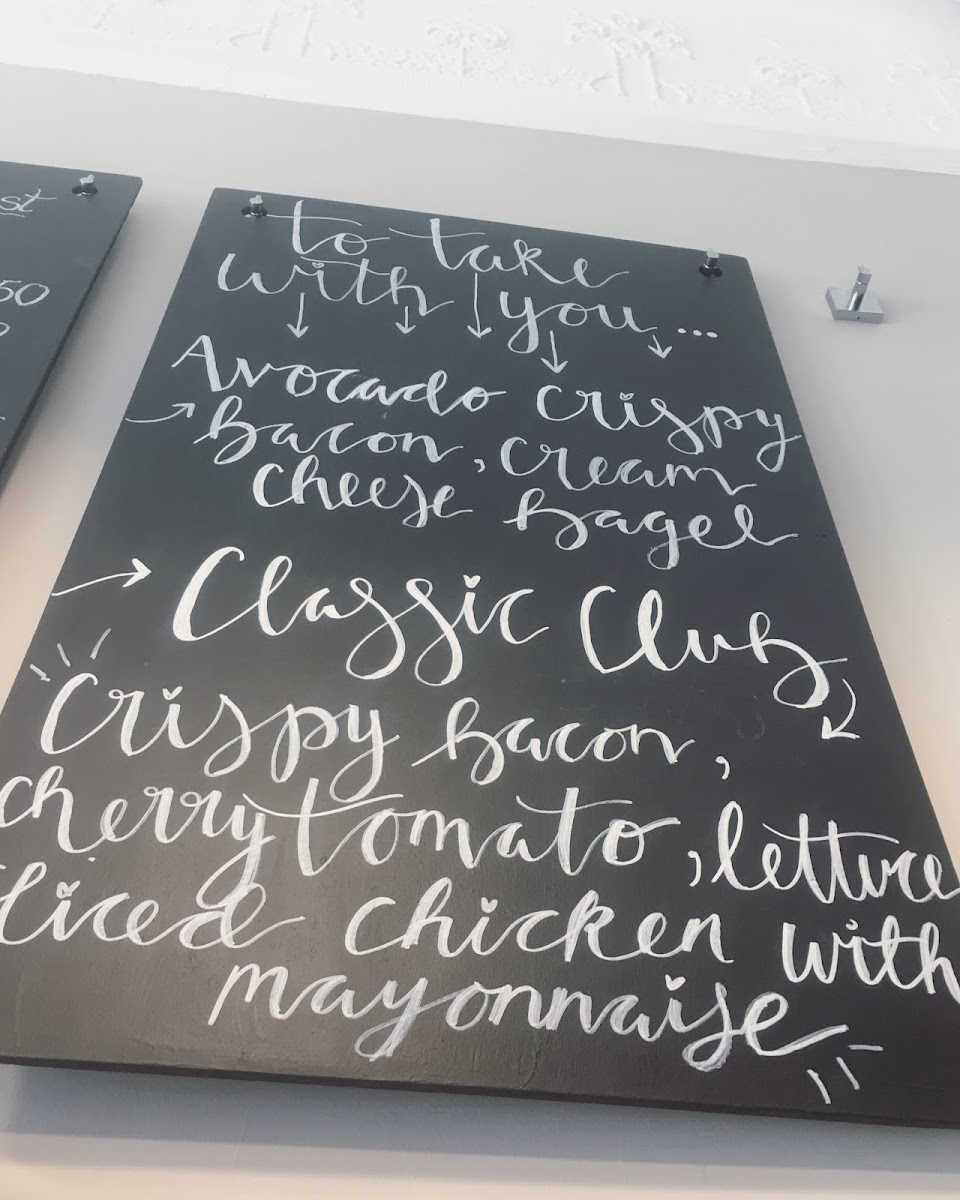 st
50
to take
with you...
Avocado crispy
bacon, cream
cheese bagel
Classic Club
Crispy bacon,
cherry tomato, lettuce
sliced chicken with
mayonnaise